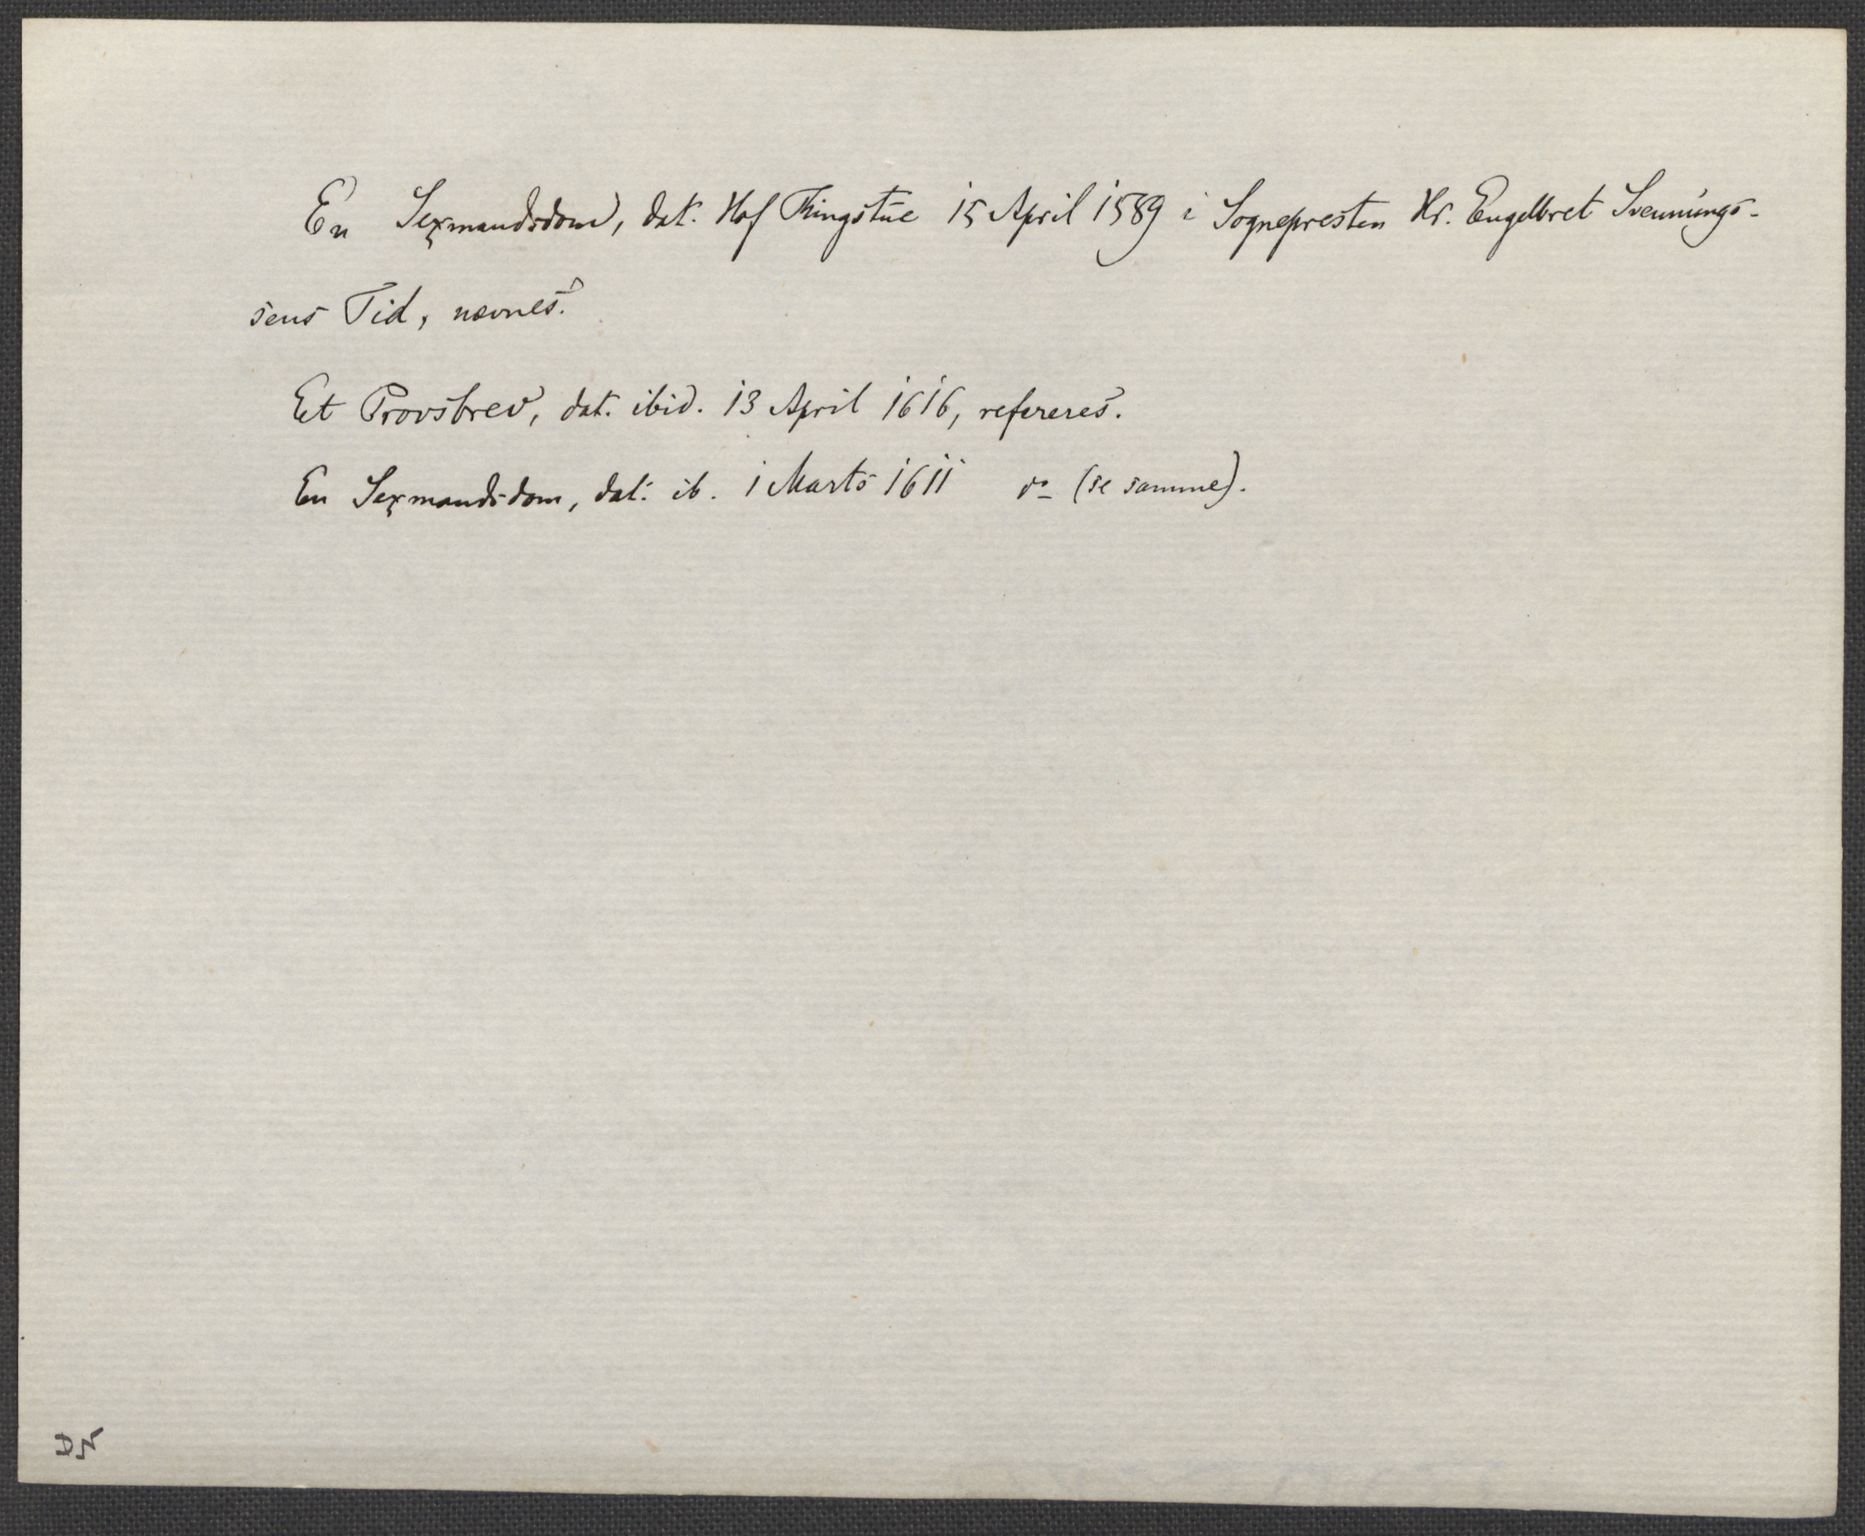 En Sexmandsdom, dat. Hof Thingstue 15 April 1589 i Sognepresten Hr. Engelbret Svennings-
sens Tid, nævnes.
Et Provsbrev, dat. ibid. 13 April 1616, refereres.
En Sexmandsdom, dat. ib. 1 Marts 1611 do (se samme).